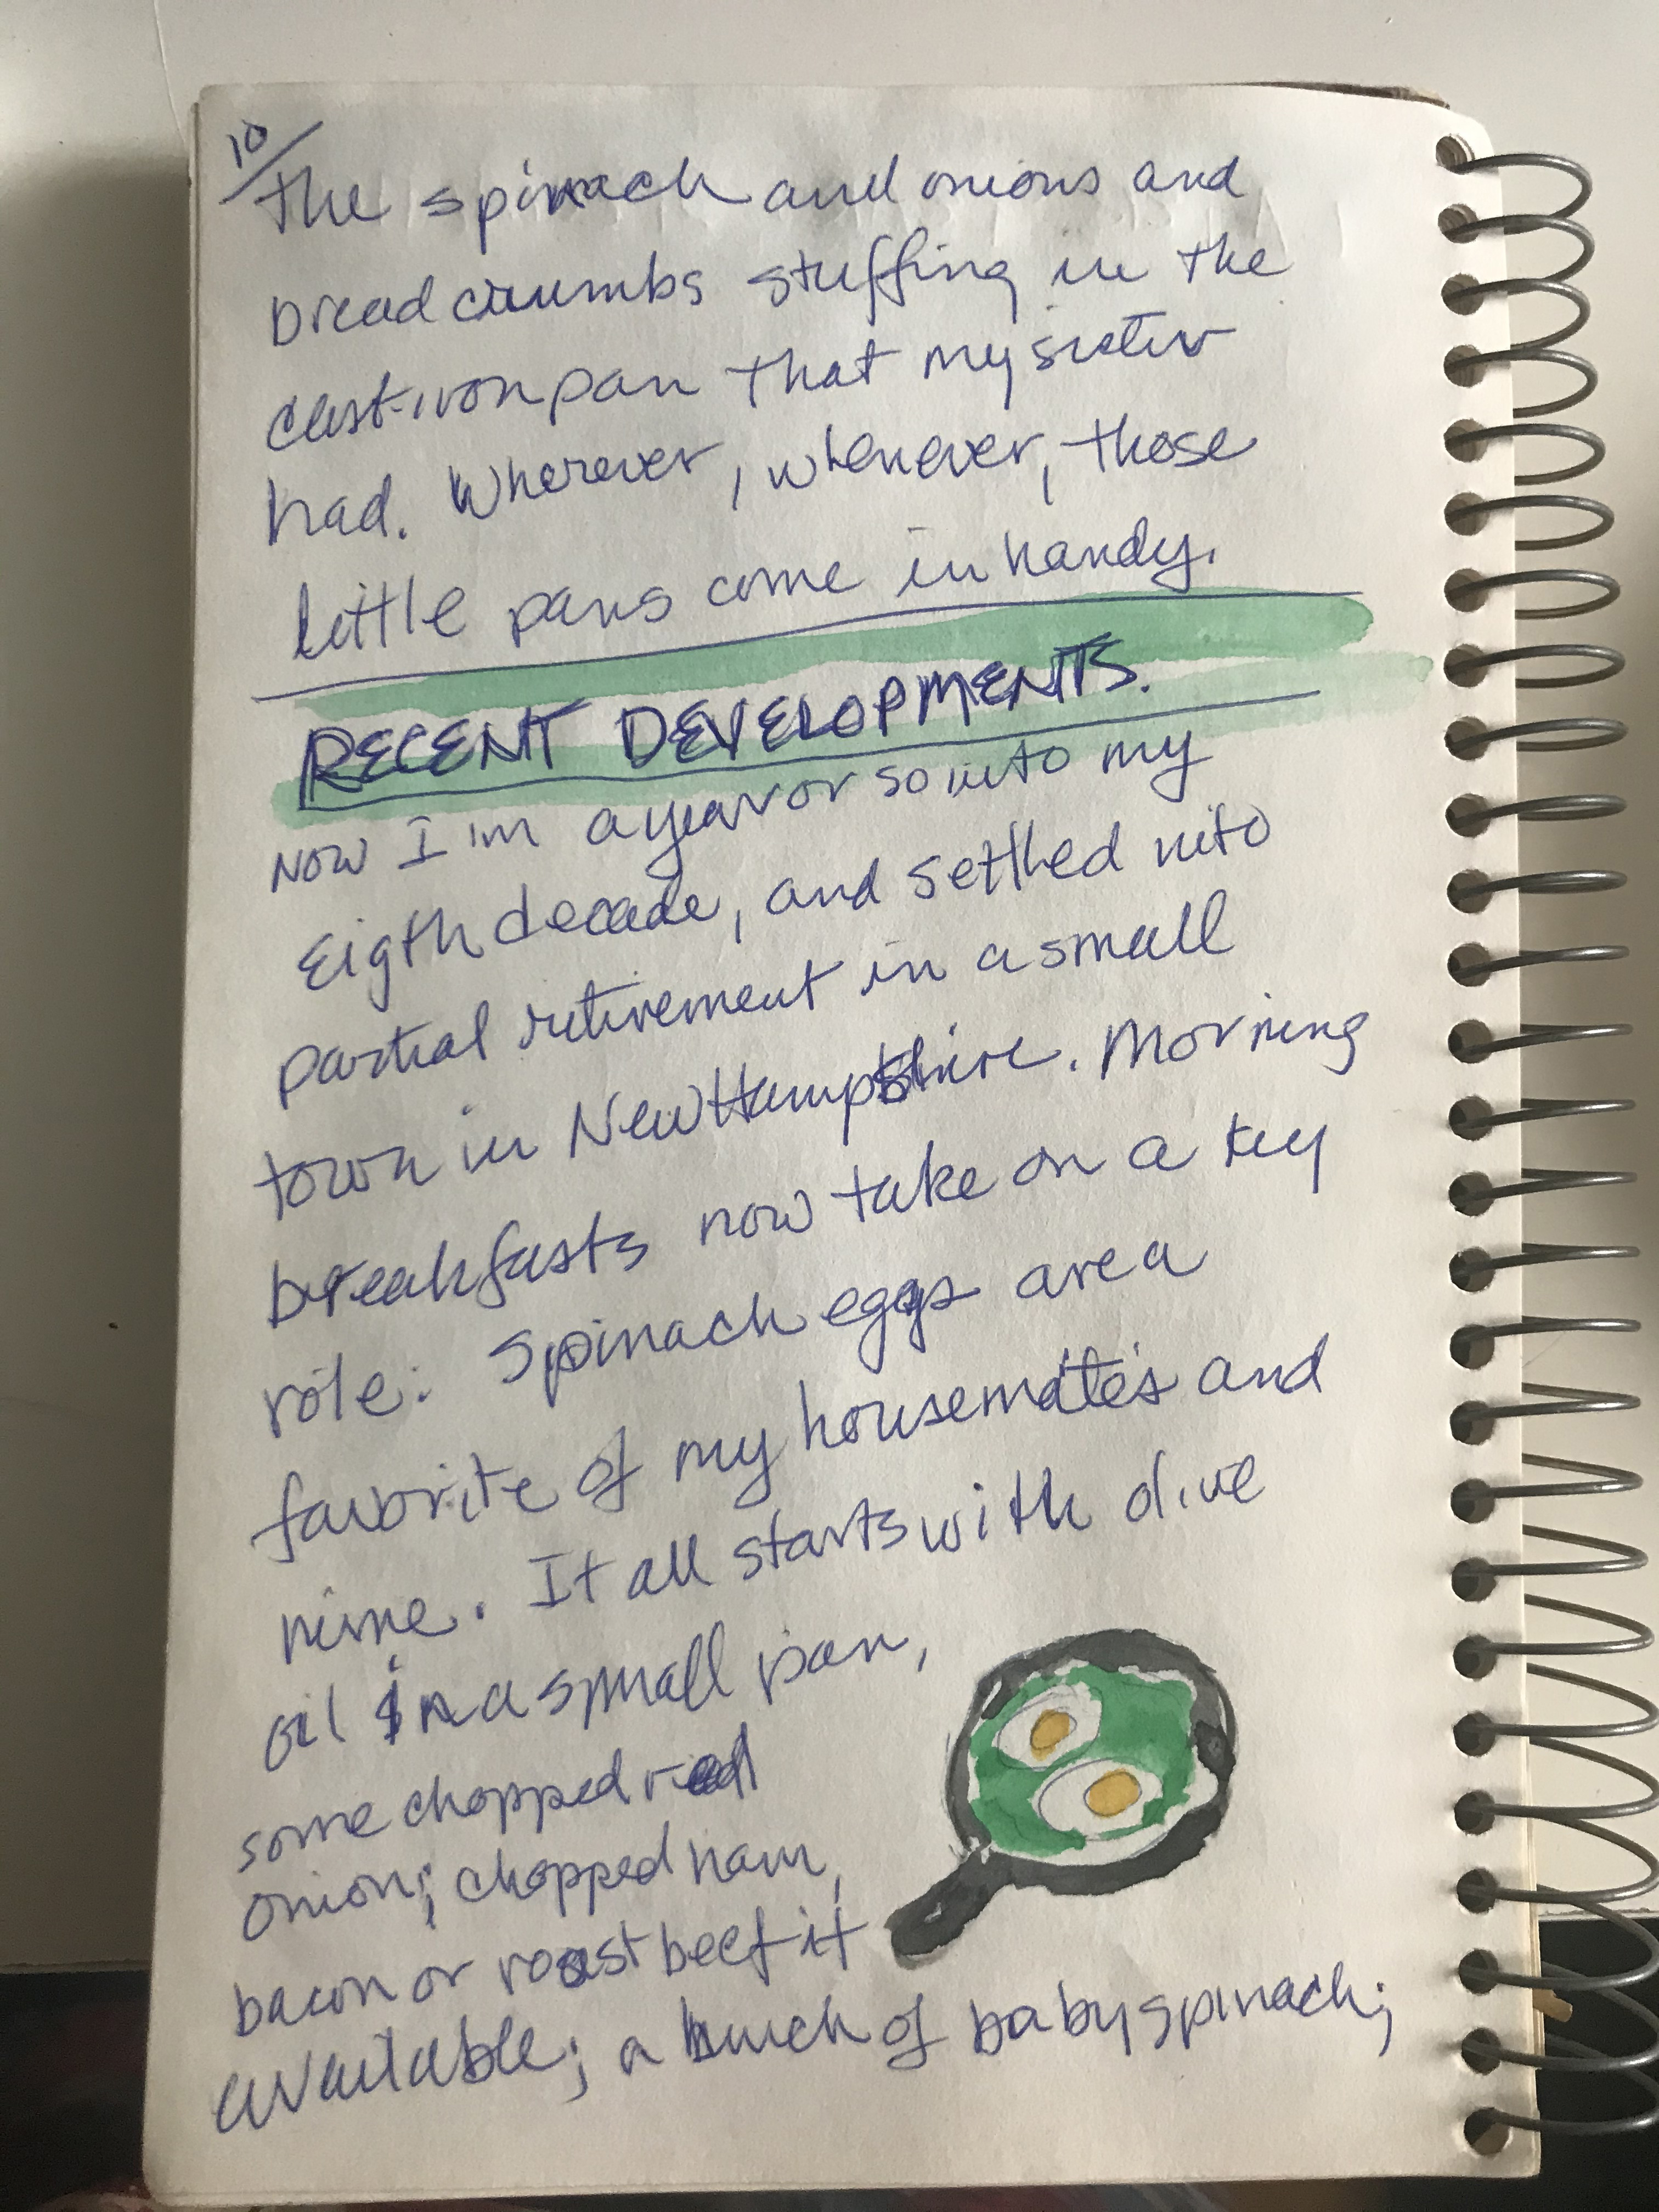 10/
the spinach and onions and
bread crumbs stuffing in the
cast-iron pan that my sister
had. Wherever, whenever, those
little pans come in handy.
RECENT DEVELOPMENTS.
Now I'm a year or so into my
Eigth decade, and settled into
partial retirement in a small
town in New Hampshire. Morning
breakfasts now take on a key
role. Spinach eggs are a
favorite of my housemate's and
mine. It all starts with olive
oil in a small pan,
some chopped red
onion; chopped ham,
bacon or roast beef if
available; a bunch of baby spinach;